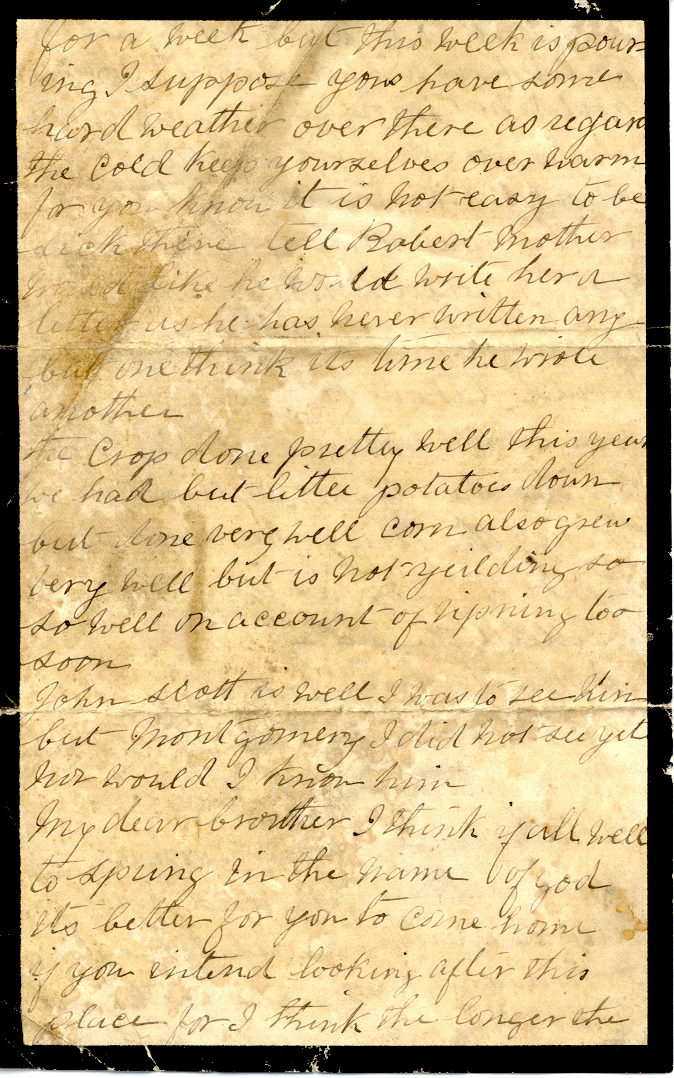 for a week but this week is pour
ing I suppose yous have some
hard weather over there as regard
the cold keep yourselves over warm
for you know it is not easy to be
sick there tell Robert Mother
would like he would write her a
letter as he has never written any
but one think its time he wrote
another
the Crop done pretty well this year
we had but littel potatoes down
but done very well corn also grew
very well but is not yeilding so
so well on account of ripning too
soon
John Scott is well I was to see him
but Montgomery I did not see yit
nor would I know him
My dear brouther I think if all well
to spring in the name of god
its better for you to come home
if you intend looking after this
place for I think the longer the